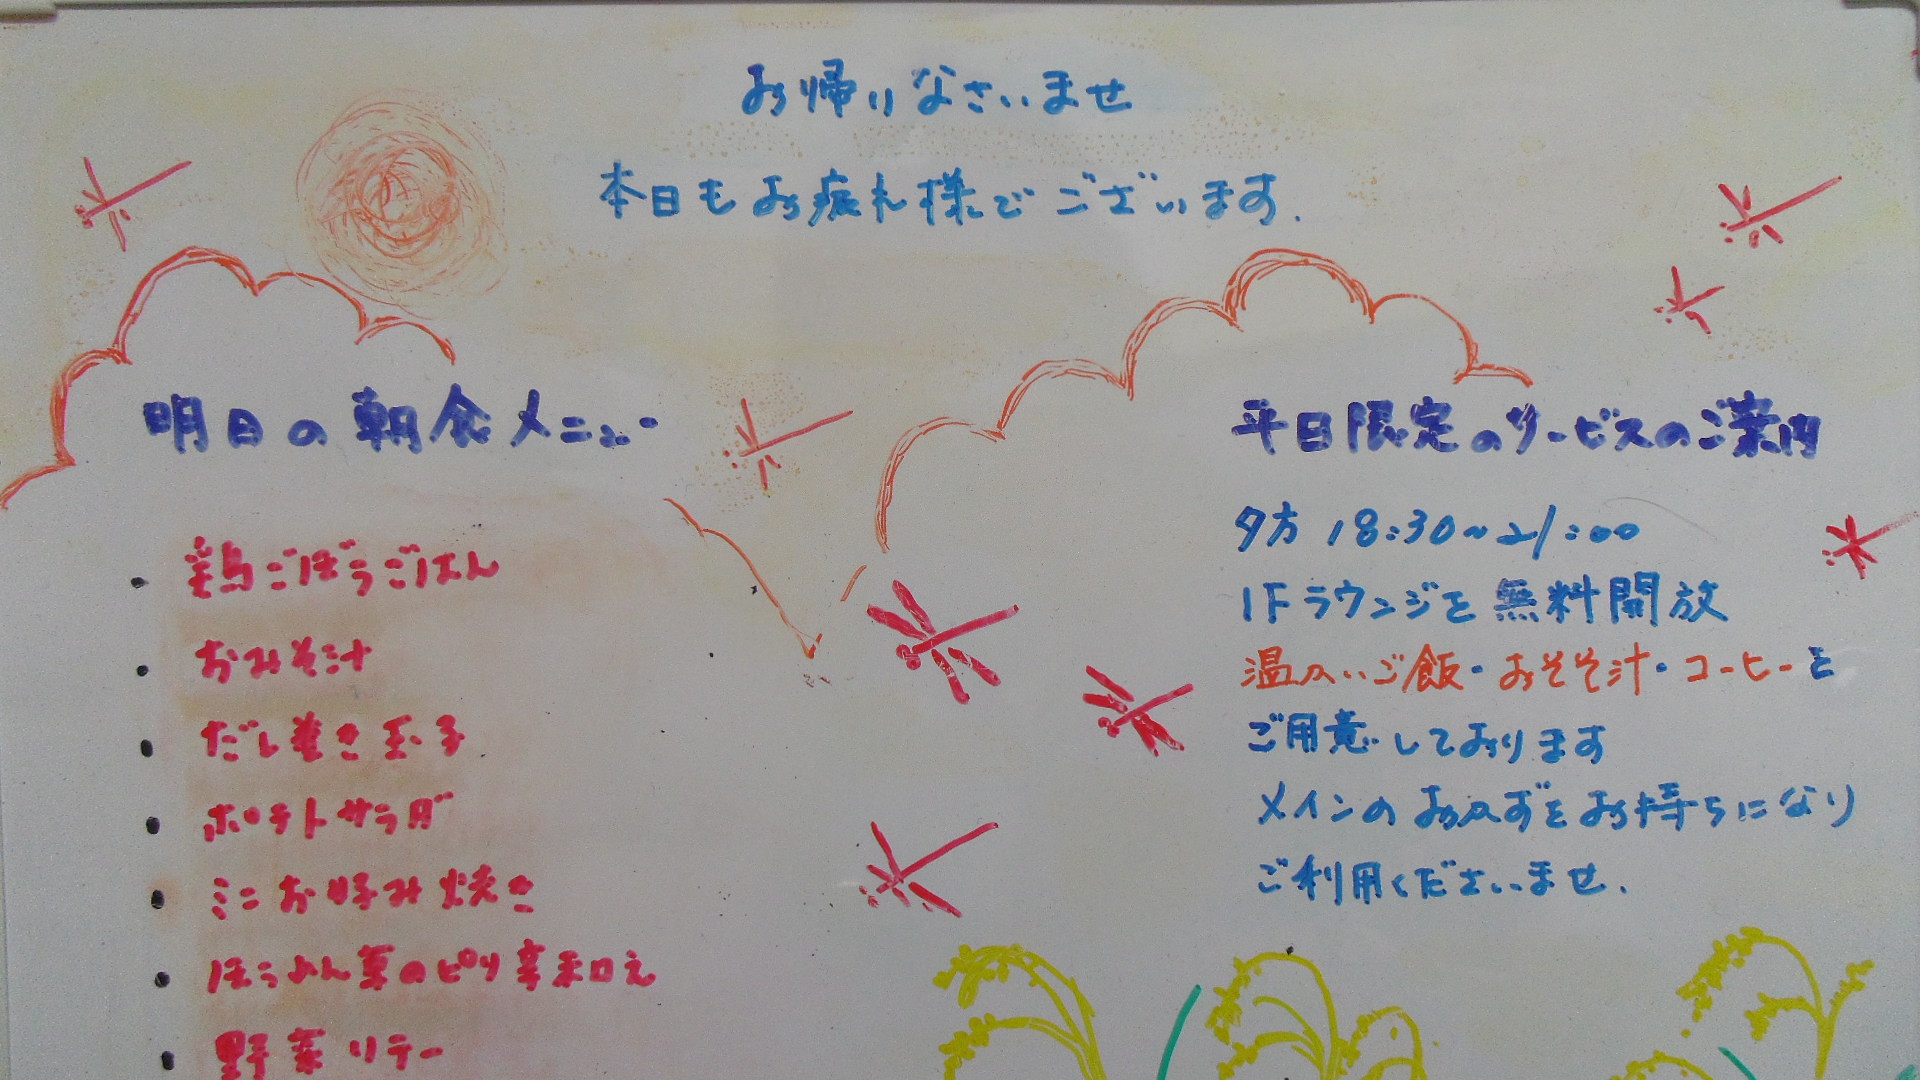 お帰りなさいませ
本日もお疲れ様でございます.
明日の朝食メニュー
・鶏ごぼうごはん
・おみそ汁
・だし巻き玉子
・ポテトサラダ
・ミニお好み焼き
・ほうれん草のピリ辛和え
・野菜ソテー
平日限定のサービスのご案内
夕方 18:30~21:00
1Fラウンジを無料開放
温かいご飯・おみそ汁・コーヒーを
ご用意しております
メインのおかずをお持ちになり
ご利用くださいませ.